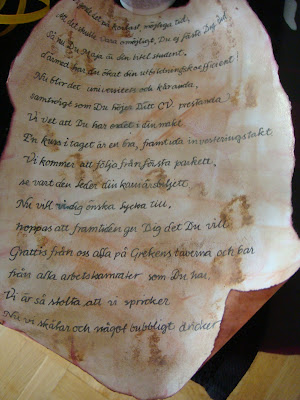 på kortast möjliga tid,
att det skulle vara omöjligt, Du ej fäste Dig vid.
Så nu Du Maja är en hkd student.
därmed har det ökat din utbildningskoefficient
Nu blir det universitets och käranda,
samtidigt som Du höjer Ditt CV. prestanda
Vi vet att Du har ordet i din makt
En kurs i taget är en bra, framtida investeringstakt.
Vi kommer att följa från första parkett.
se vart den leder din karriärsbiljett
Nu vill vi dig önska lycka till,
hoppas att framtiden ger Dig det Du vill.
Grattis från oss alla på Grekens taverna och bar
från alla arbetskamrater som Du har.
Vi är så stolta att vi spricker
Nu vi skålar och något bubbligt dricker